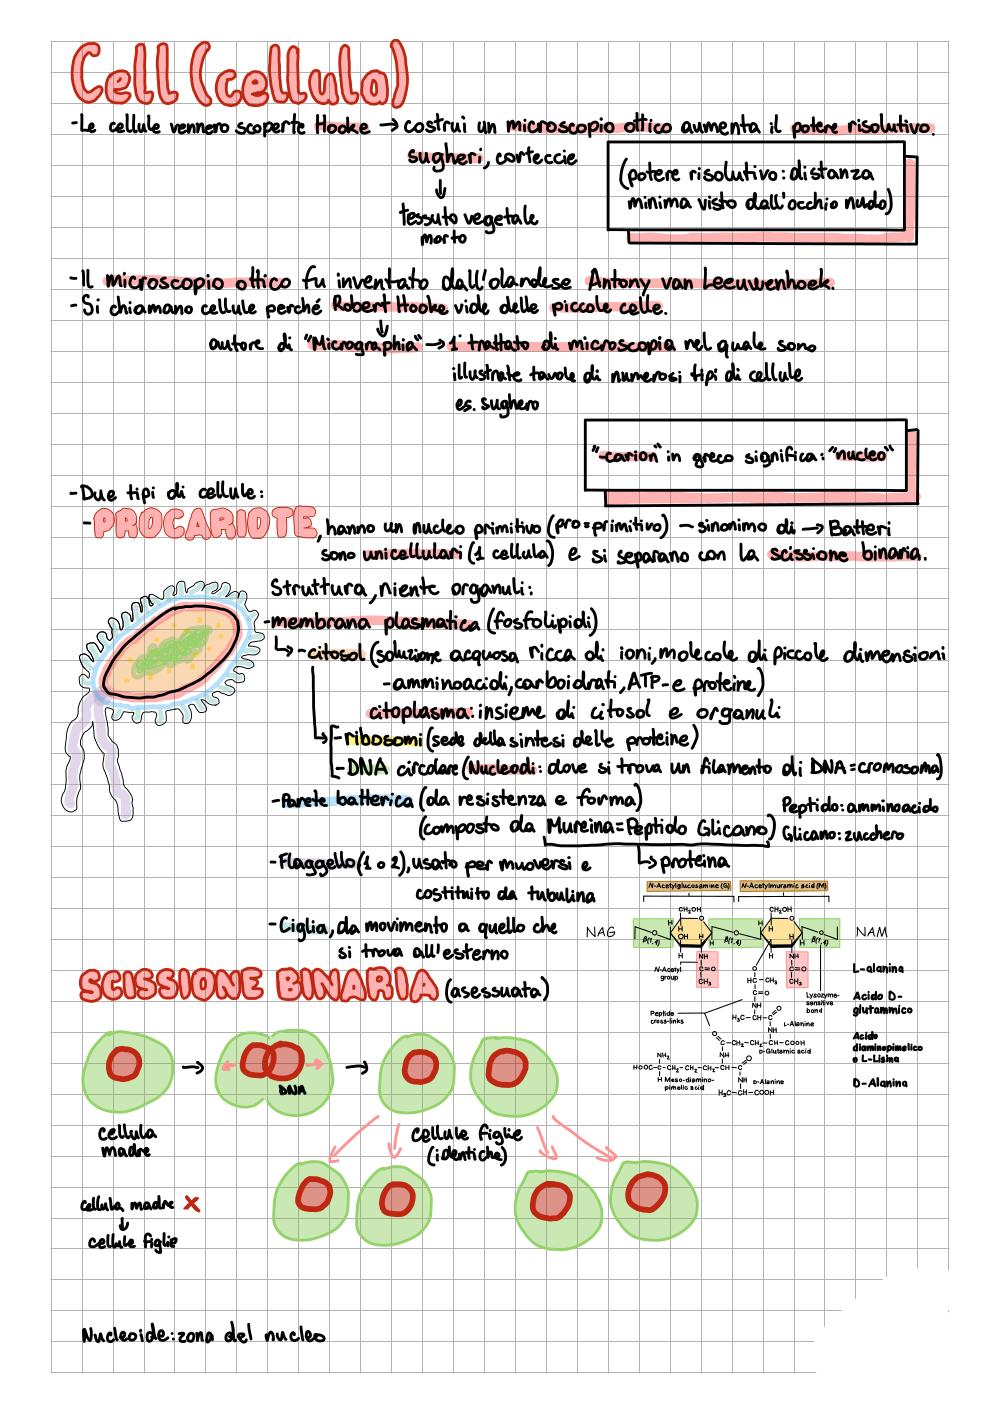 Cell (cellula)
-Le cellule vennero scoperte Hooke → costruì un microscopio ottico aumenta il potere risolutivo.
sugheri, corteccie
↓
tessuto vegetale
morto
(potere risolutivo: distanza
minima visto dall'occhio nudo)
-Il microscopio ottico fu inventato dall'olandese Antony van Leeuwenhoek.
-Si chiamano cellule perché Robert Hooke vide delle piccole celle.
↓
autore di "Micrographia" → 1° trattato di microscopia nel quale sono
illustrate tavole di numerosi tipi di cellule
es. sughero
"-carion" in greco significa: "nucleo"
-Due tipi di cellule:
-PROCARIOTE, hanno un nucleo primitivo (pro=primitivo) - sinonimo di → Batteri
sono unicellulari (1 cellula) e si separano con la scissione binaria.
Struttura, niente organuli:
-membrana plasmatica (fosfolipidi)
↳ -citosol (soluzione acquosa ricca di ioni, molecole di piccole dimensioni
-amminoacidi, carboidrati, ATP- e proteine)
citoplasma: insieme di citosol e organuli
-ribosomi (sede della sintesi delle proteine)
-DNA circolare (Nucleodi: dove si trova un filamento di DNA=cromosoma)
-Parete batterica (da resistenza e forma)
(composto da Mureina=Peptido Glicano)
↳ proteina
Peptido: amminoacido
Glicano: zucchero
-Flaggello (1 o 2), usato per muoversi e
costituito da tubulina
-Ciglia, da movimento a quello che
si trova all'esterno
N-Acetylglucosamine (G)
N-Acetylmuramic acid (M)
NAG
CH₂OH
CH₂OH
NAM
β(1,4)
β(1,4)
β(1,4)
O
O
OH
H
H
H
H
N-Acetyl
group
NH
C=O
CH₃
NH
C=O
CH₃
O
HC-CH₃
C=O
Lysozyme-
sensitive
bond
Peptide
cross-links
NH
H₃C-CH-C=O
L-Alanine
NH
O
C-CH₂-CH₂-CH-COOH
D-Glutamic acid
NH₂
NH
HOOC-C-CH₂-CH₂-CH₂-CH-C=O
H
Meso-diamino-
pimelic acid
NH
D-Alanine
H₃C-CH-COOH
L-alanina
Acido D-
glutammico
Acido
diaminopimelico
o L-Lisina
D-Alanina
SCISSIONE BINARIA (asessuata)
→
DNA
→
cellula
madre
cellule figlie
(identiche)
cellula madre X
↓
cellule figlie
Nucleoide: zona del nucleo